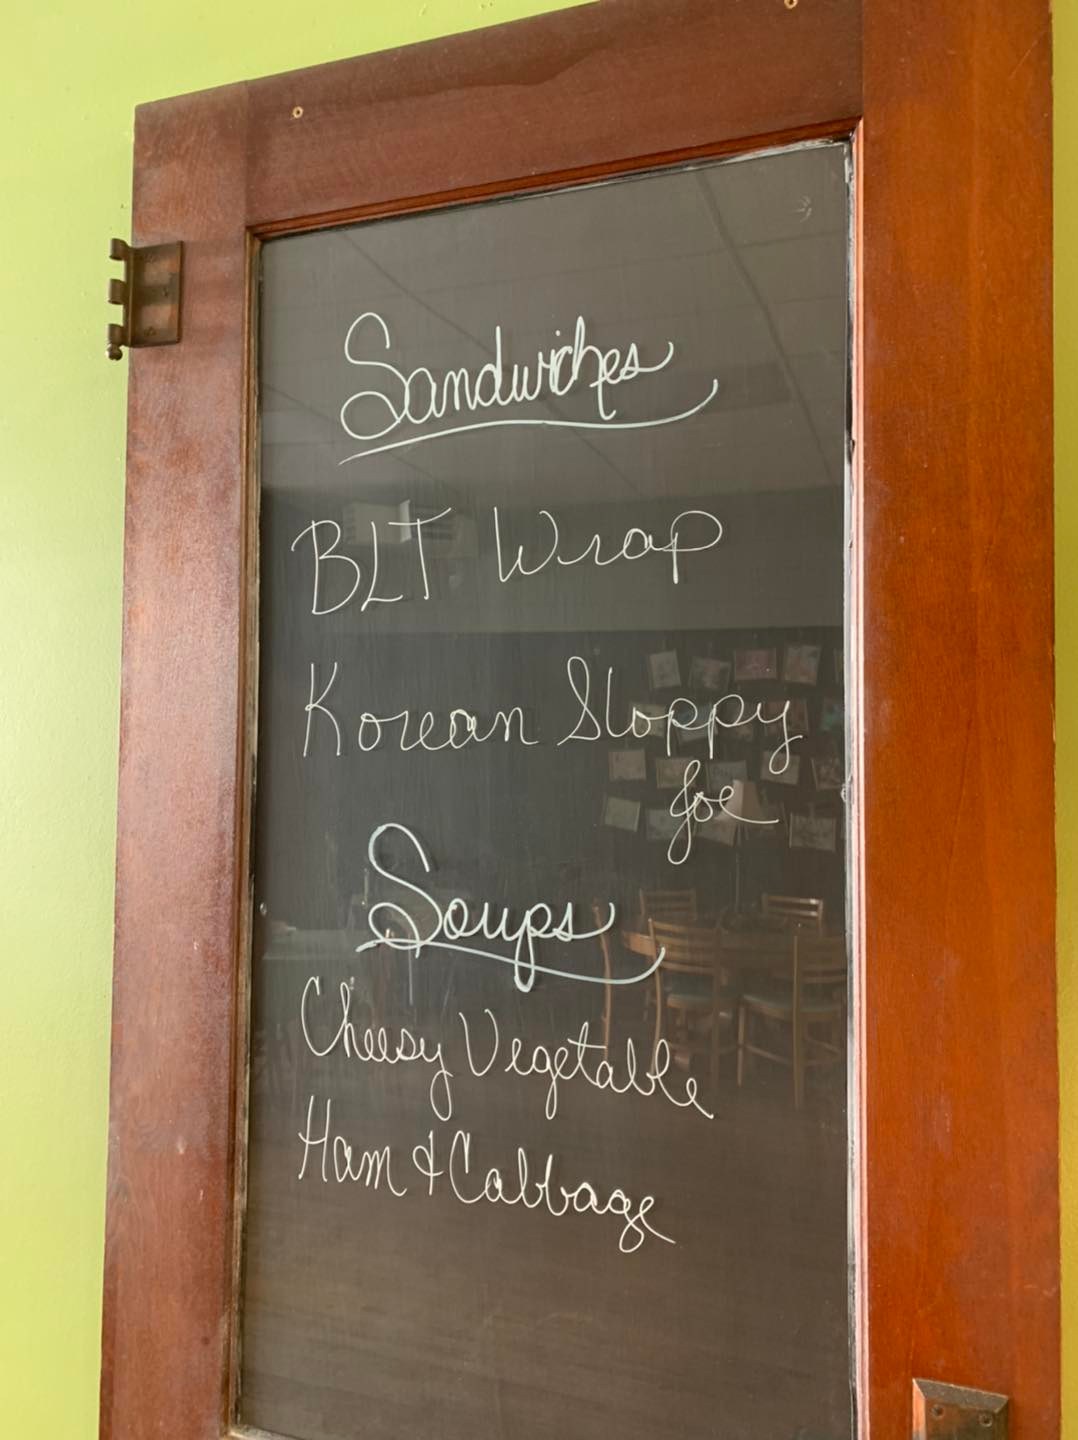 Sandwiches
BLT Wrap
Korean Sloppy
Joe
Soups
Cheesy Vegetable
Ham & Cabbage